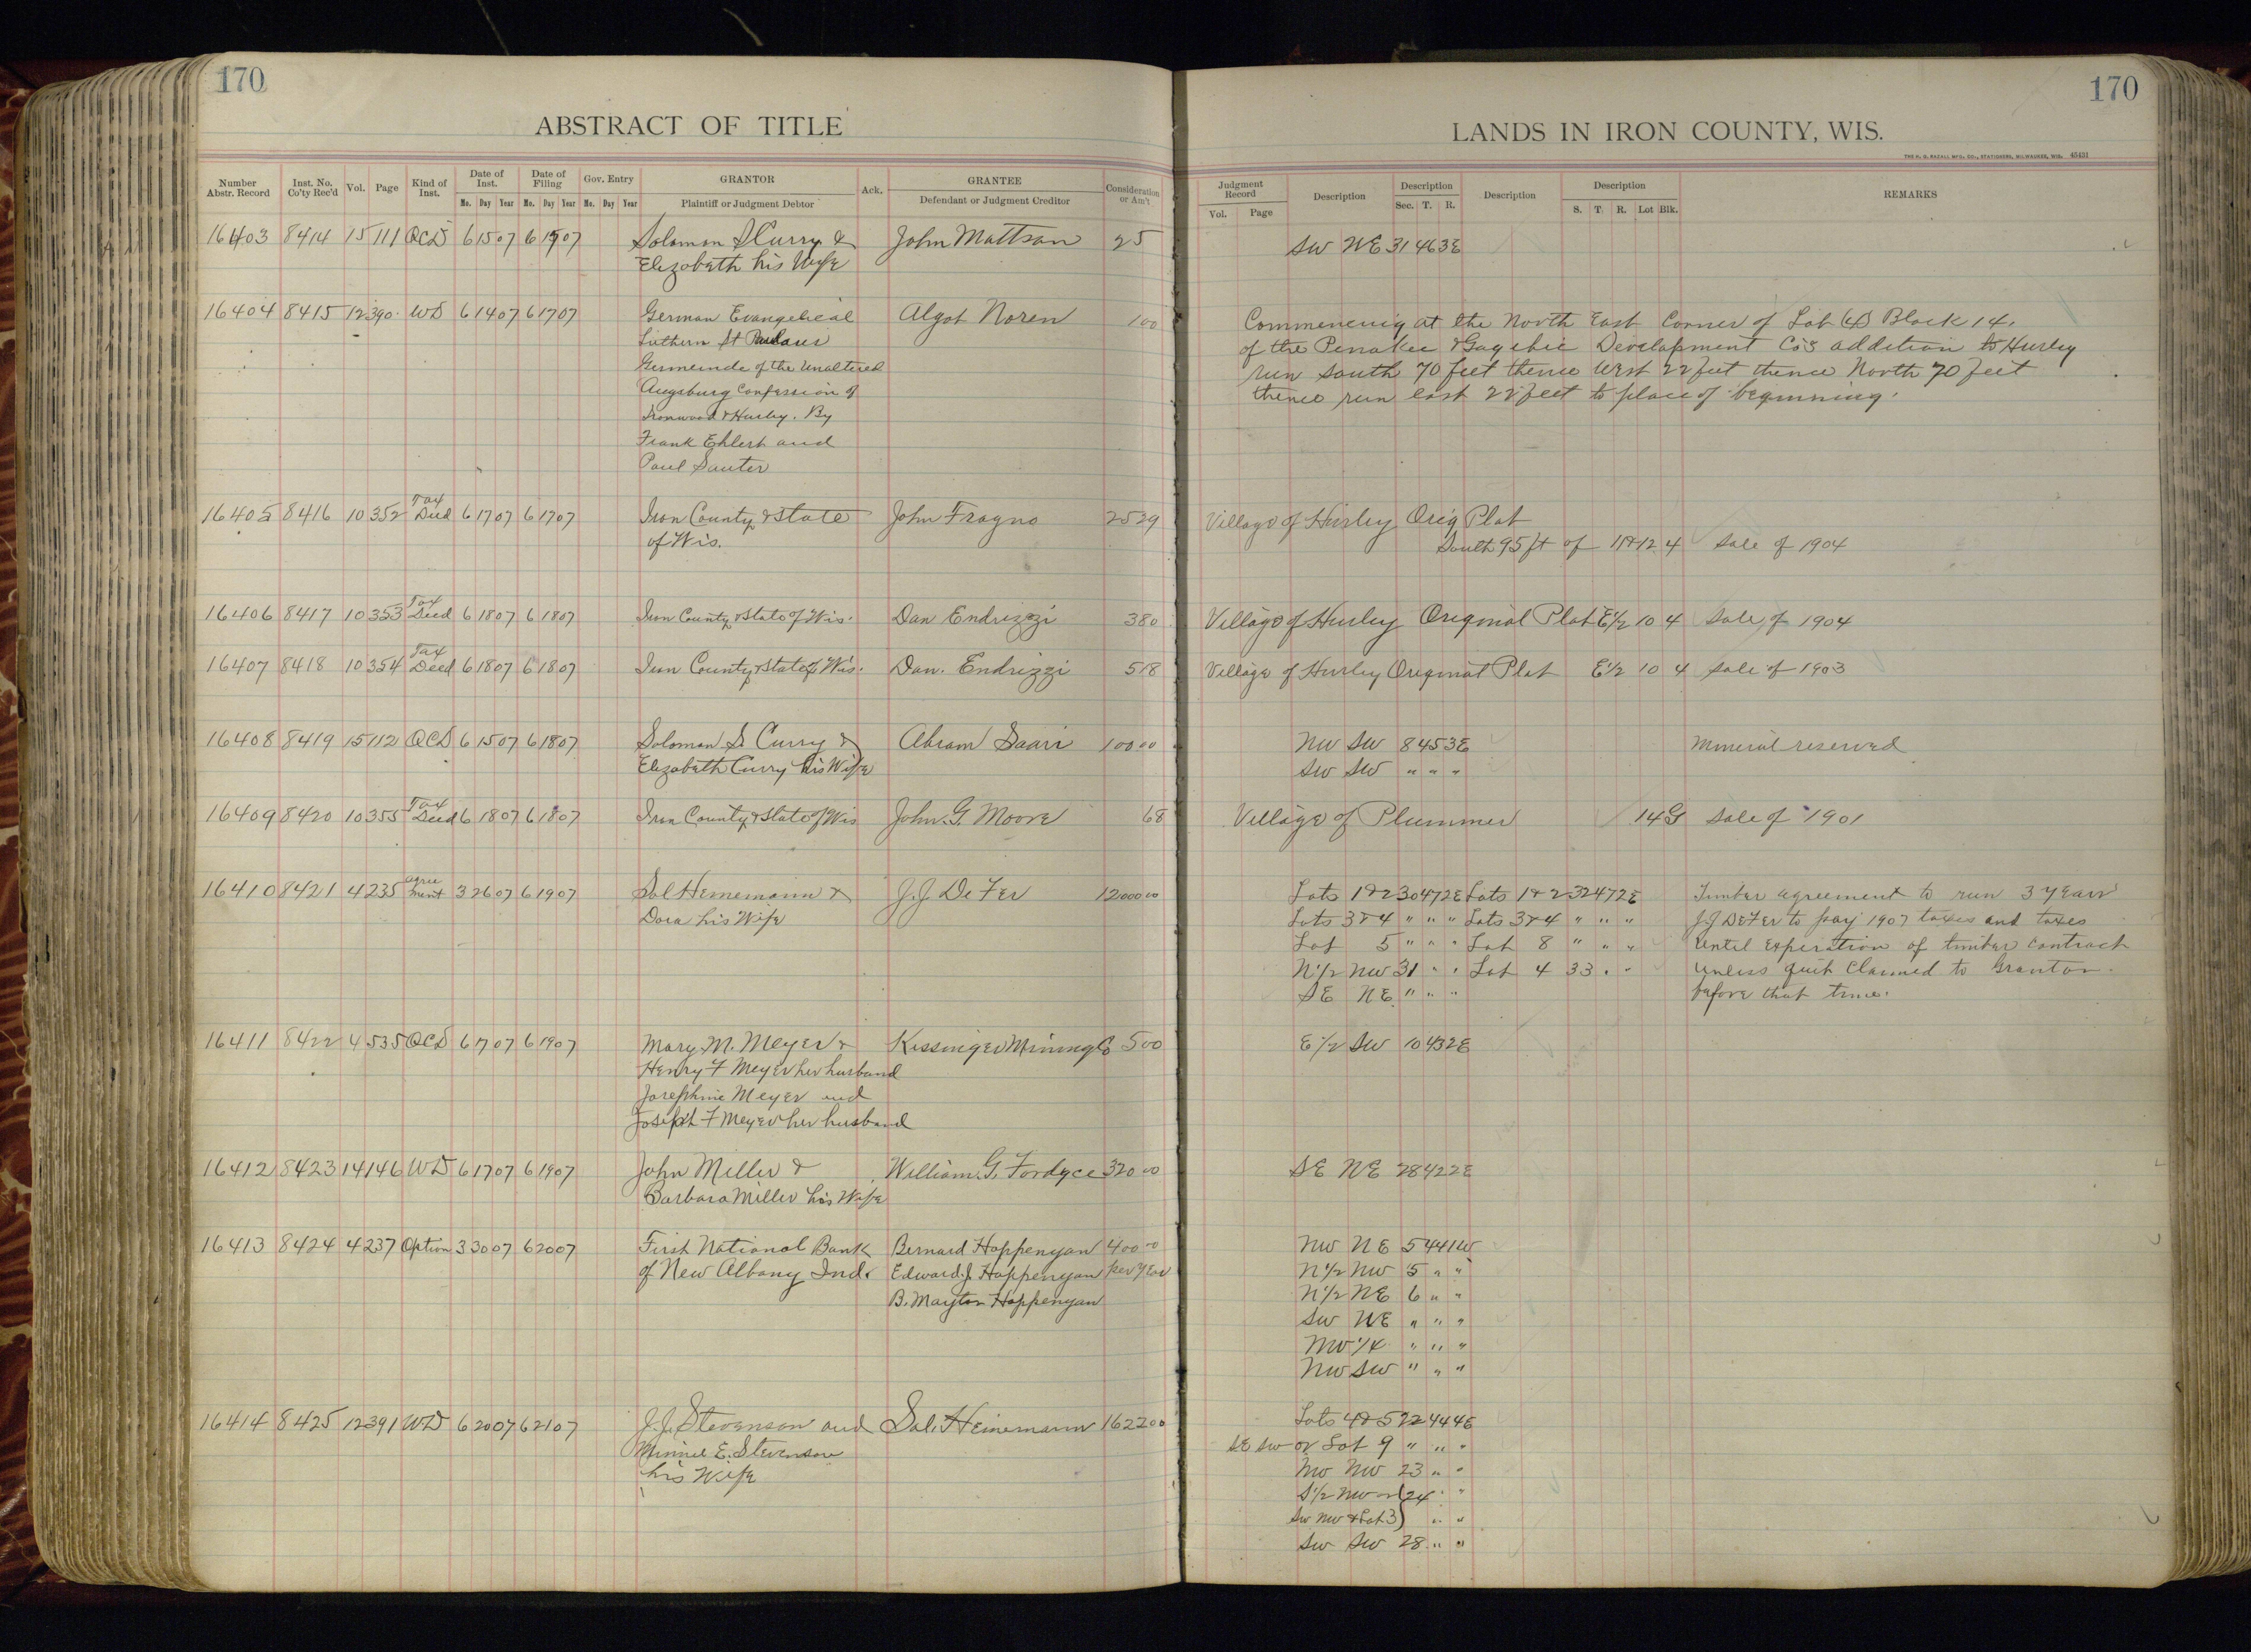 170
ABSTRACT OF TITLE
Number Abstr. Record Inst. No. Co'ty Rec'd Vol. Page Kind of Inst. Date of Inst. Date of Filing Gov. Entry GRANTOR Ack. GRANTEE Consideration or Am't
Mo. Day Year Mo. Day Year Mo. Day Year Plaintiff or Judgment Debtor Defendant or Judgment Creditor
16403 8414 15 111 QCD 6 15 07 6 15 07 Solomon S Curry & John Mattson 25
Elizabeth his Wife
16404 8415 12 390 WD 6 14 07 6 17 07 German Evangelical Algot Noren 100
Luthern St
Germeinde of the Unaltered
Augsburg Confession of
Ironwood & Hurley. By
Frank Ehlert and
Paul Sauter
16405 8416 10 352 Tax Deed 6 17 07 6 17 07 Iron County & State John Fragno 2529
of Wis.
16406 8417 10 353 Tax Deed 6 18 07 6 18 07 Iron County & State of Wis. Dan Endrizzi 380
16407 8418 10 354 Tax Deed 6 18 07 6 18 07 Iron County & State of Wis. Dan. Endrizzi 518
16408 8419 15 112 QCD 6 15 07 6 18 07 Soloman S. Curry & Abram Saari 100 00
Elizabeth Curry his Wife
16409 8420 10 355 Tax Deed 6 18 07 6 18 07 Iron County & State of Wis John. G. Moore 68
16410 8421 4 235 agreement 3 26 07 6 19 07 Sol Heinemann & J. J. De Fer 12000 00
Dora his Wife
16411 8422 4 535 QCD 6 17 07 6 19 07 Mary. M. Meyer & Kissinger Mining Co 500
Henry F Meyer her husband
Josephine Meyer and
Joseph F Meyer her husband
16412 8423 14 146 WD 6 17 07 6 19 07 John Miller & William. G. Fordyce 320 00
Barbara Miller his Wife
16413 8424 4 237 Option 3 30 07 6 20 07 First National Bank Bernard Hoppenyan 400 00
of New Albany Ind. Edward. J. Hoppenyan per year
B. Mayton Hoppenyan
16414 8425 12 391 WD 6 20 07 6 21 07 J. J. Stevenson and Sol. Heinemann 1622 00
Minnie E. Stevenson
his Wife
170
LANDS IN IRON COUNTY, WIS.
THE H. G. RAZALL MFG. CO., STATIONERS, MILWAUKEE, WIS. 45431
Judgment Record Description Description Description Description REMARKS
Vol. Page Sec. T. R. S. T. R. Lot Blk.
SW NE 31 46 3E
Commencing at the North East Corner of Lot (4) Block 14.
of the Penokee & Gogebic Development Co's addition to Hurley
run South 70 feet thence West 22 feet thence North 70 feet
thence run east 22 feet to place of beginning.
Village of Hurley Orig Plat
South 95 ft of 11&12 4 Sale of 1904
Village of Hurley Original Plat E1/2 10 4 Sale of 1904
Village of Hurley Original Plat E1/2 10 4 Sale of 1903
NW SW 8 45 3E Mineral reserved
SW SW " " "
Village of Plummer 14 G Sale of 1901
Lots 1&2 30 47 2E Lots 1&2 32 47 2E Timber agreement to run 3 years
Lots 3&4 " " " Lots 3&4 " " " J. J DeFer to pay 1907 taxes and taxes
Lot 5 " " " Lot 8 " " " until Experation of timber contract
N1/2 NW 31 " " Lot 4 33 " " unless quit Claimed to Grantor
SE NE " " " before that time.
E1/2 SW 10 43 2E
SE NE 28 42 2E
NW NE 5 44 1W
N1/2 NW 5 " "
N1/2 NE 6 " "
SW NE " " "
NW1/4 " " "
NW SW " " "
Lots 4&5 22 44 4E
SE SW or Lot 9 " " "
NW NW 23 " "
S1/2 NW or 24 " "
SW NW & Lot 3) " "
SW SW 28 " "